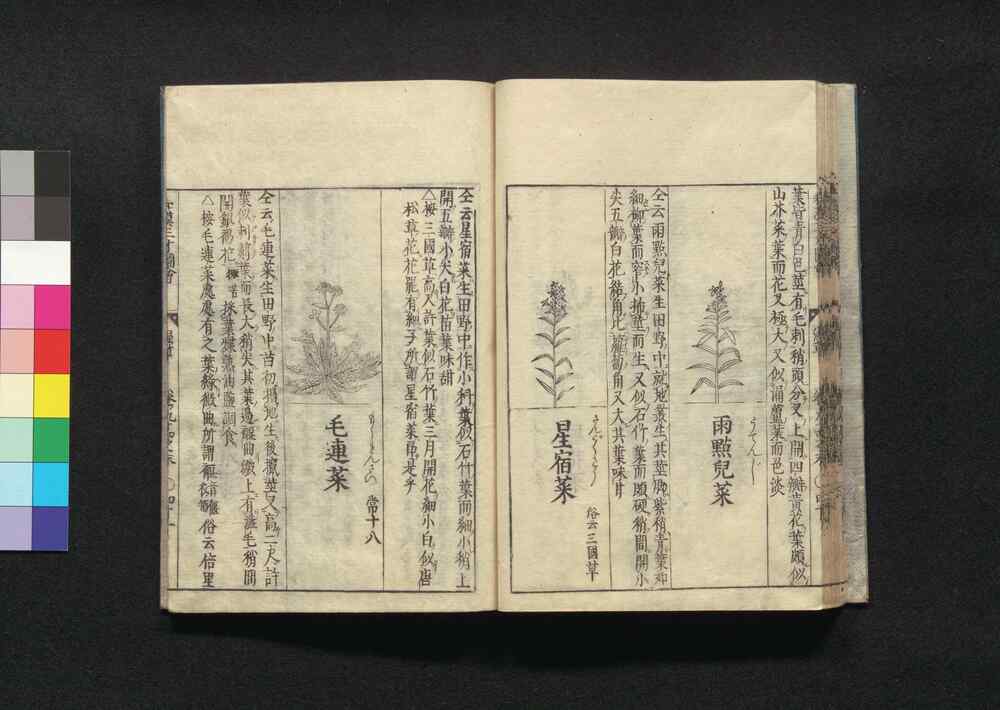 葉皆青白色莖有毛刺稍頭分叉上開四瓣黃花葉頗似
山芥菜葉而花又極大又似湧蘆葉而色淡
雨點兒菜
仝云雨點兒菜生田野中就地叢生其莖脚紫稍青葉如
細柳葉而窄小抪莖而生又似石竹葉而頗硬稍間開小
尖五瓣白花結角比蘿蔔角又大其葉味甘
星宿菜
俗云三國草
仝云星宿菜生田野中作小科葉似石竹葉而細小稍上
開五瓣小尖白花苗葉味甜
△按三國草高又許葉似石竹葉三月開花細小白似唐
松草花花罷有細子所謂星宿菜是乎
毛連菜
常十八
仝云毛連菜生田野中苗初搨地生後攛莖叉高二尺許
葉似刺薊葉而長大稍尖其葉邊褗曲皺上有澁毛稍間
開銀褐花 味苦 採葉煠熟油鹽調食
△按毛連菜處處有之葉綠微曲所謂 俗云倍里